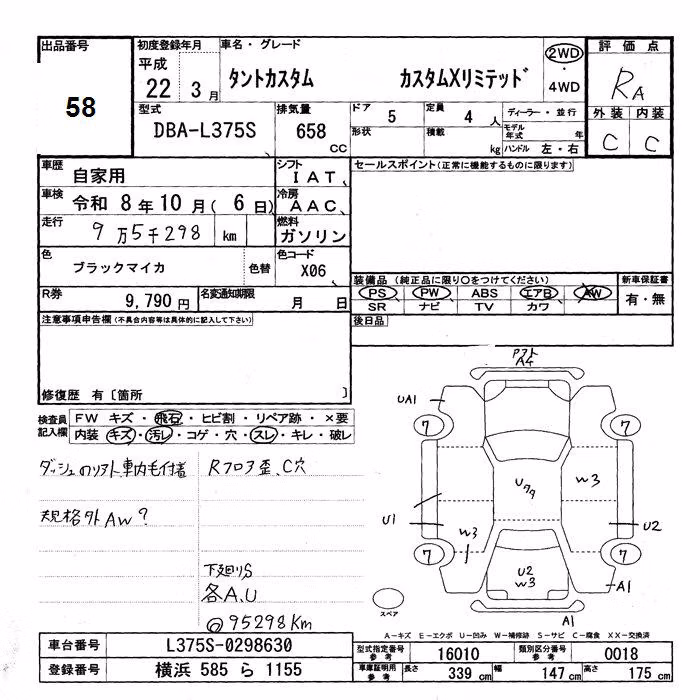 出品番号
58
初度登録年月
平成
22 3月
車名・グレード
タントカスタム カスタムXリミテッド
2WD
・
4WD
評価点
RA
外装 内装
C C
型式
DBA-L375S
排気量
658
cc
ドア 5
定員 4人
ディーラー・並行
形状
積載 kg
モデル年式 年
ハンドル 左・右
車歴
自家用
シフト
IAT
車検
令和 8年10月(6日)
冷房
AAC
走行
9万5千298 km
燃料
ガソリン
色
ブラックマイカ 色替
色コード
X06
R券
9,790円
名変通知期限
月 日
セールスポイント(正常に機能するものに限ります)
装備品(純正品に限り○をつけてください)
PS PW ABS エアB AW
SR ナビ TV カワ
新車保証書
有・無
後日品
注意事項申告欄(不具合内容等は具体的に記入して下さい)
修復歴 有[箇所 ]
検査員
記入欄
FW キズ・飛石・ヒビ割・リペア跡・×要
内装 キズ・汚レ・コゲ・穴・スレ・キレ・破レ
Rフロア歪、C穴
規格外AW?
下廻りS
各A、U
◎95298Km
UA1
7
7
U77
W3
U1
W3
U2
7
7
U2
W3
A1
A1
スペア
A-キズ E-エクボ U-凹み W-補修跡 S-サビ C-腐食 XX-交換済
車台番号
L375S-0298630
型式指定番号
参考
16010
類別区分番号
参考
0018
登録番号
横浜 585 ら 1155
車庫証明用
参考
長さ 339 cm 幅 147 cm 高さ 175 cm